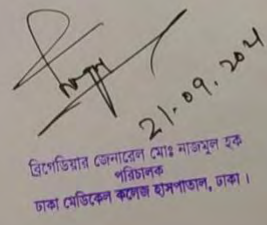 21.09.204
ব্রিগেডিয়ার জেনারেল মোঃ নাজমুল হক
পরিচালক
ঢাকা মেডিকেল কলেজ হাসপাতাল, ঢাকা।